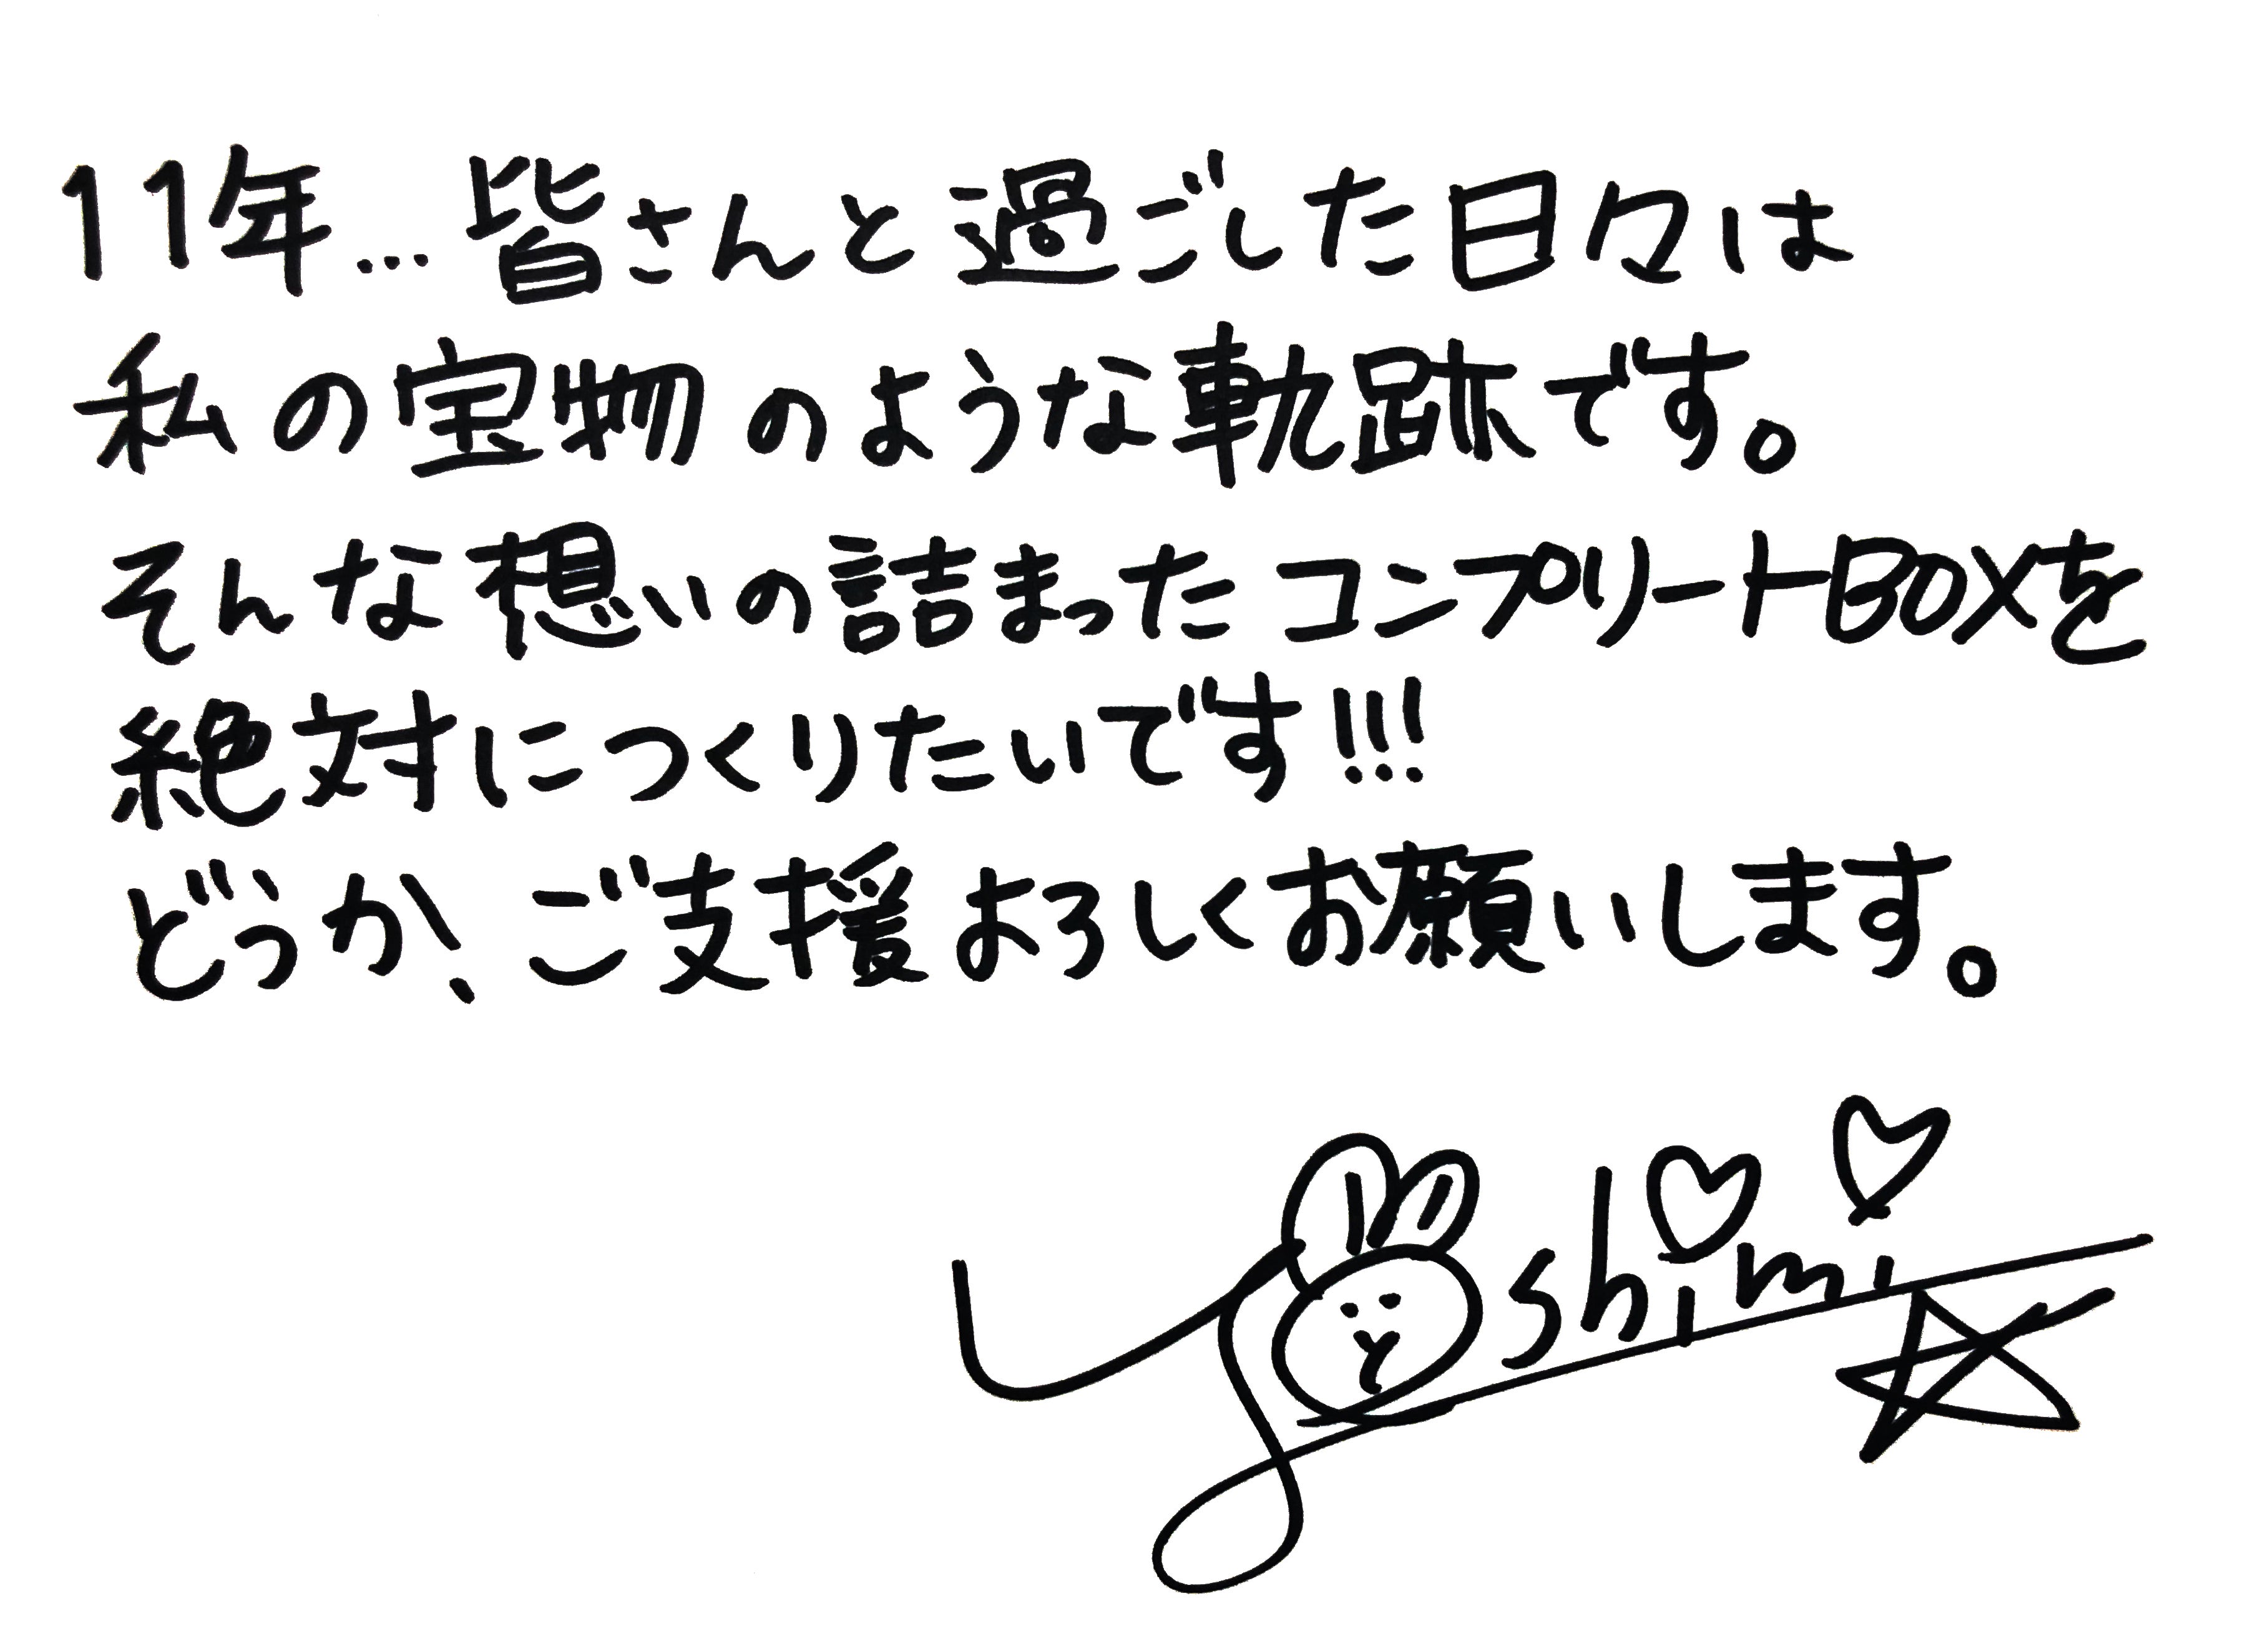 11年...皆さんと過ごした日々は
私の宝物のような軌跡です。
そんな想いの詰まったコンプリートBOXを
絶対につくりたいです!!!
どうか、ご支援よろしくお願いします。
yoshimi